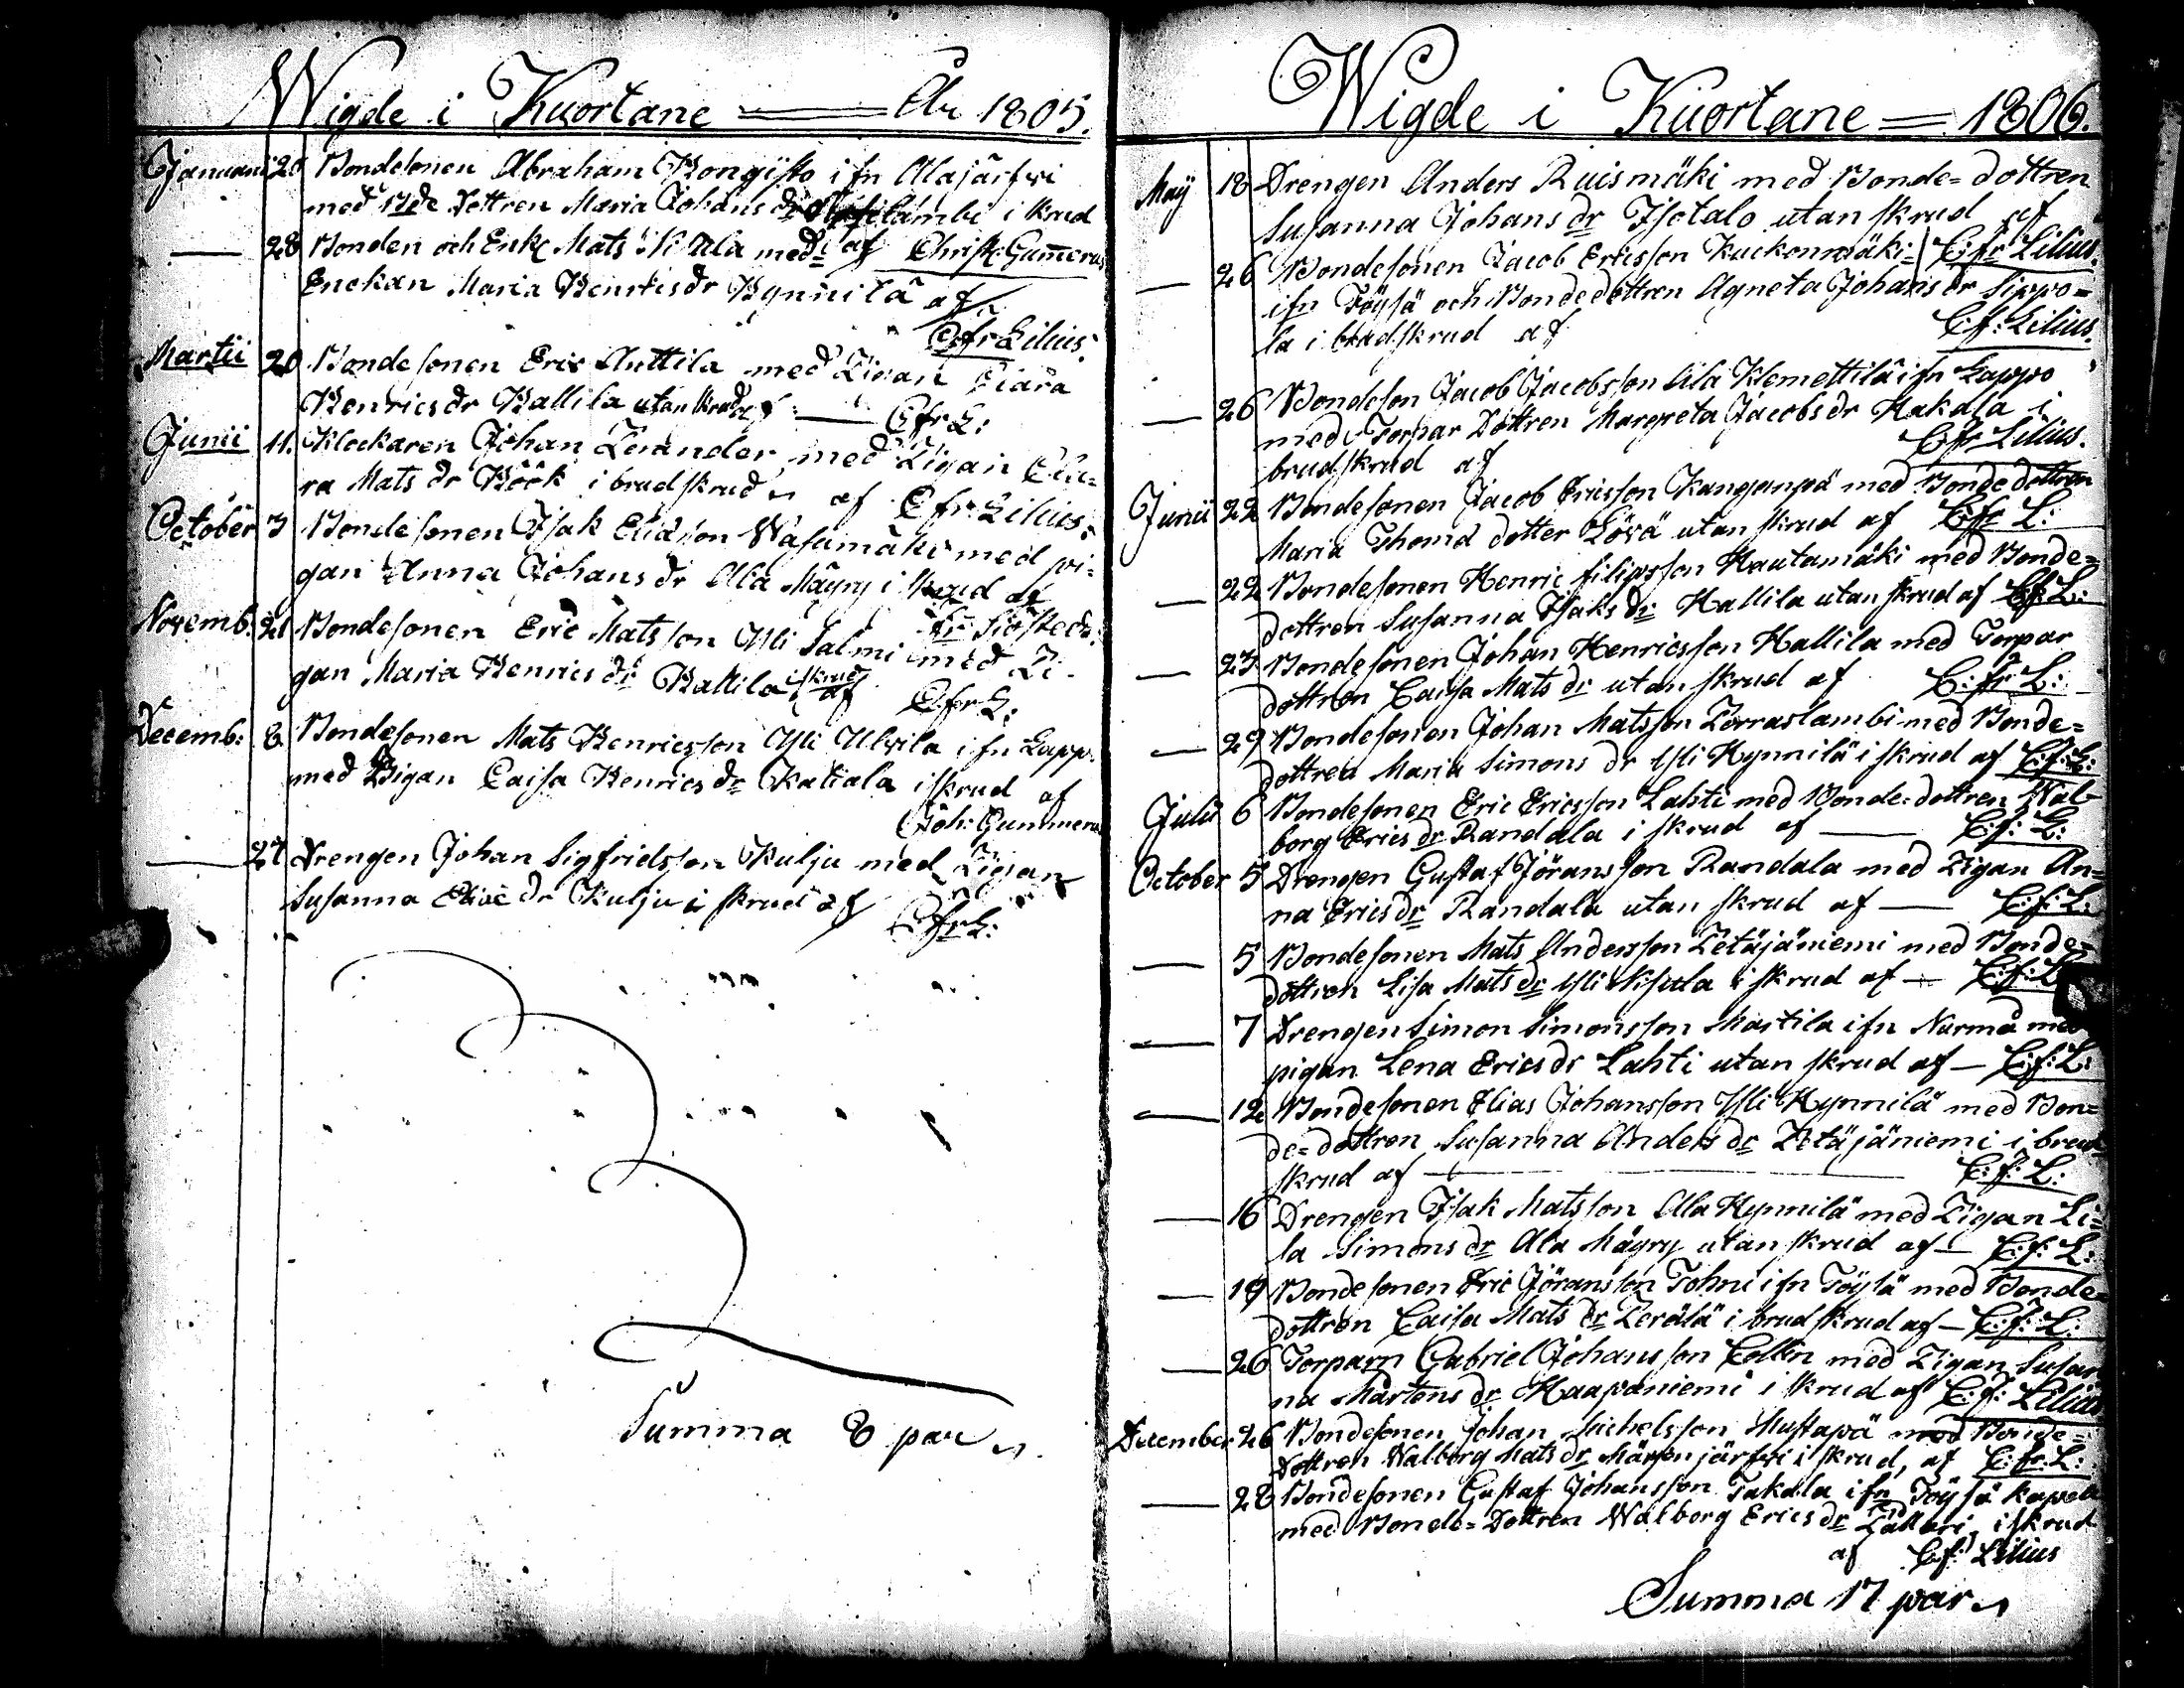 Wigde i Kuortane — År 1805.
Januarii 20 Bondesonen Abraham Kongisto ifn Alajärfwi
med Bde Dottren Maria Johans dr lambi i skrud
— 28 Bonden och Enkl Mats Ala med af Christ: Gummerus
Enckan Maria Henricsdr Hynnilä af
C: fr Lilius.
Martii 20 Bondesonen Eric Anttila med Pigan Clara
Henrics dr Kallila utan skrud af — C fr L:
Junii 11. Klockaren Johan Levander med Pigan Cla=
ra Mats dr Höök i brudskrud af C fr: Lilius.
October 3 Bondesonen Isak Eliasson Wasumäki med pi=
gan Anna Johans dr Ala Mäyry i skrud af
Sjöstedt
Novemb: 21 Bondesonen Eric Matsson Yli Salmi med Pi=
gan Maria Henrics dr Kallila i skrud af C fr L:
Decemb: 8 Bondesonen Mats Henricsson Yli Ulvila ifn Lappo
med Pigan Caisa Henrics dr Katiala i skrud af
Joh: Gummerus
— 27 Drengen Johan Sigfridsson Kulju med Pigan
Susanna Elias dr Kulju i skrud af
C fr L:
Summa 8 par
Wigde i Kuortane = 1806.
Maij 18 Drengen Anders Ruismäki med Bonde=dottren
Susanna Johans dr Isotalo utan skrud af
C: fr Lilius.
— 26 Bondesonen Jacob Ericsson Kuckonmäki=
ifn Töysä och Bondedottren Agneta Johans dr Sippo=
la i brudskrud af C: f: Lilius.
— 26 Bondeson Jacob Jacobsson Ala Klemettilä ifn Lappo
med Torpar Dottren Margreta Jacobs dr Hakala i
brudskrud af C: fr Lilius.
Junii 22 Bondesonen Jacob Ericsson Kanganpä med Bonde dottren
Maria Thomæ dotter Lövä utan skrud af C: fr L:
— 22 Bondesonen Henric filipsson Hautamäki med Bonde=
dottren Susanna Isaks dr Kallila utan skrud af C: f: L:
— 23 Bondesonen Johan Henricsson Kallila med Torpar
dottren Caisa Mats dr utan skrud af C: fr L:
— 29 Bondesonen Johan Matsson Porraslambi med Bonde=
dottren Maria Simons dr Yli Hynnilä i skrud af C: f: L:
Julii 6 Bondesonen Eric Ericsson Lahti med Bonde=dottren Wal-
borg Erics dr Randala i skrud af — C: f: L:
October 5 Drengen Gustaf Jöransson Randala med Pigan An=
na Erics dr Randala utan skrud af — C: f: L:
— 5 Bondesonen Mats Andersson Petäjäniemi med Bonde=
dottren Lisa Mats dr Yli Kisula i skrud af — C: f: L
— 7 Drengen Simon Simonsson Martila ifn Nurmo med
pigan Lena Erics dr Lahti utan skrud af — C: f: L:
— 12 Bondesonen Elias Johansson Yli Hynnilä med Bon=
de=dottren Susanna Anders dr Petäjäniemi i brud
skrud af — C: f: L:
— 16 Drengen Isak Matsson Ala Hynnilä med Pigan Li=
sa Simons dr Ala Mäyry utan skrud af — C: f: L:
— 19 Bondesonen Eric Jöransson Tohni ifn Töysä med Bonde=
dottren Caisa Mats dr Perälä i brudskrud af — C: f: L:
— 26 Torparn Gabriel Johansson med Pigan Susan
na Mårtens dr Haapaniemi i skrud af C: f: Lilius
December 26 Bondesonen Johan Michelsson Mustapä med Bonde=
Dottren Walborg Mats dr järfwi i skrud, af C: fr: L:
— 28 Bondesonen Gustaf Johansson Takala ifn Töysä kapell
med Bonde=Dottren Walborg Erics dr i skrud
af C: f: Lilius
Summa 17 par